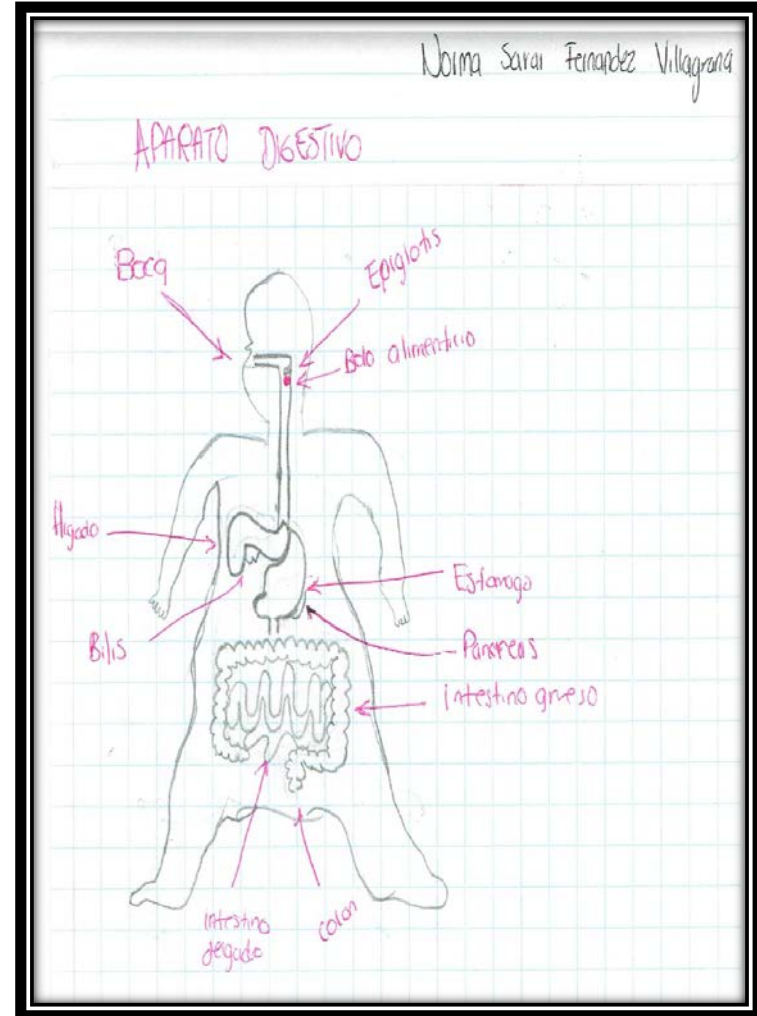 Norma Sarai Fernandez Villagrana
APARATO DIGESTIVO
Boca
Epiglotis
Bolo alimenticio
Higado
Estomago
Bilis
Pancreas
intestino grueso
intestino
delgado
colon